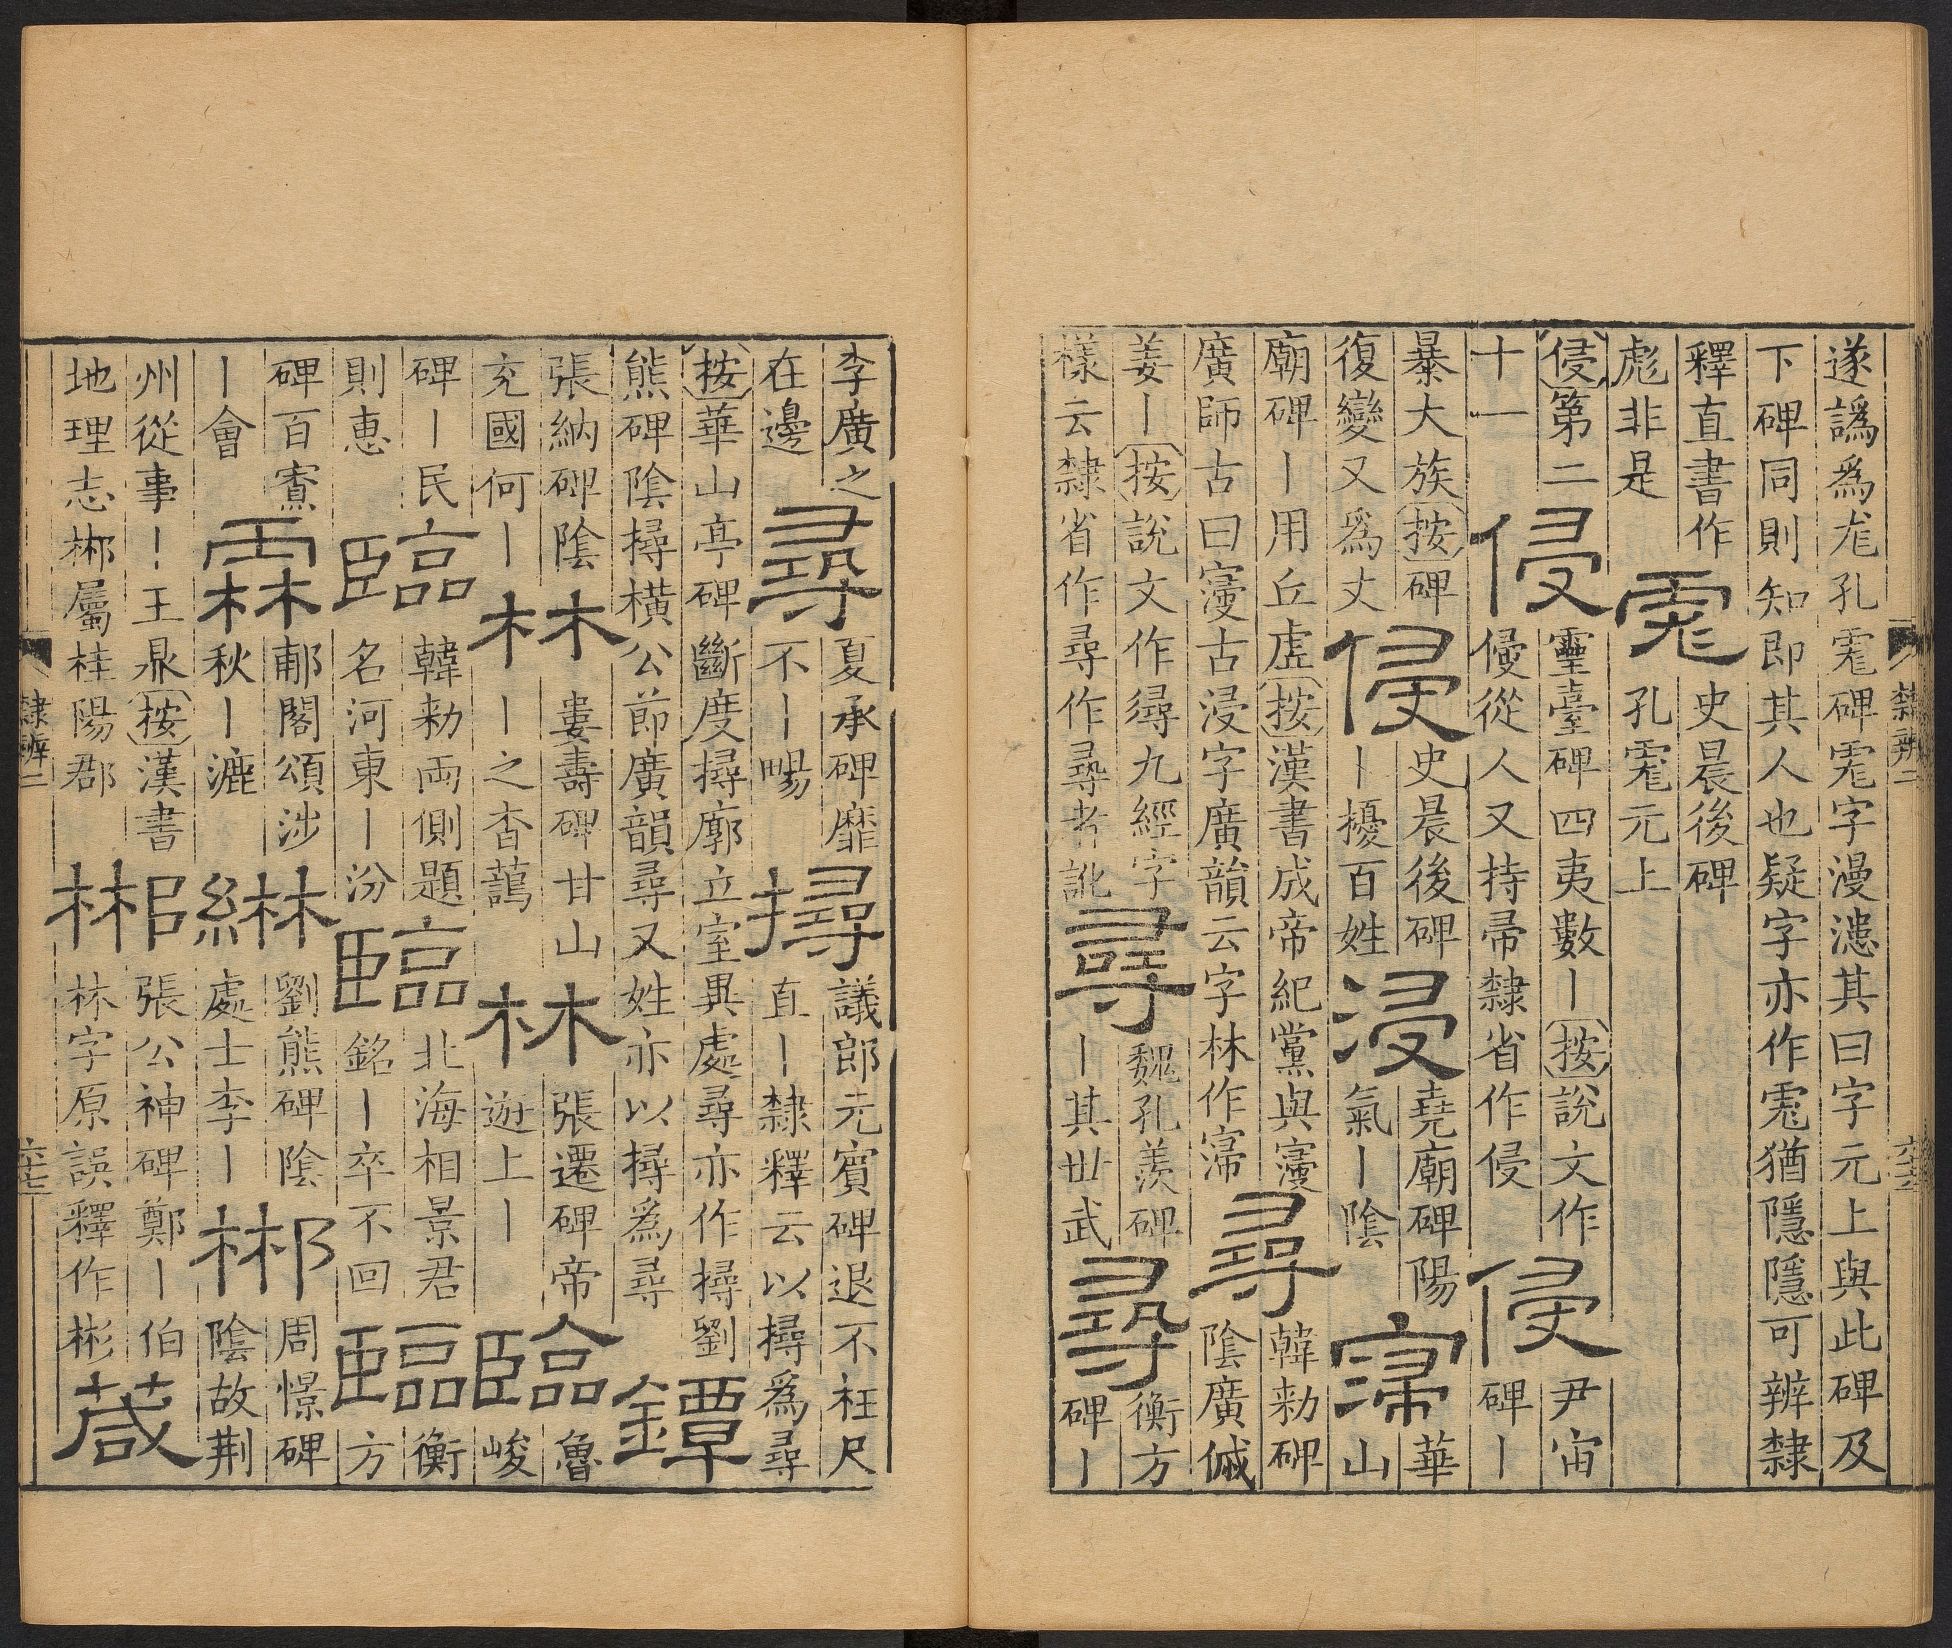 遂譌爲尨孔䨲碑䨲字漫漶其曰字元上與此碑及
下碑同則知即其人也疑字亦作䨲猶隱隱可辨隸
釋直書作
彪非是
䨲
史晨後碑
孔䨲元上
侵第二
十一
侵
靈臺碑四夷數〡按說文作
侵從人又持帚隸省作侵
侵
尹宙
碑〡
暴大族按碑
復變又爲丈
侵
史晨後碑
〡擾百姓
浸
堯廟碑陽
氣〡陰
寖
華
山
廟碑〡用丘虛按漢書成帝紀黨與寖
廣師古曰寖古浸字廣韻云字林作
尋
韓勑碑
陰廣傶
姜〡按說文作𢒫九經字
樣云隸省作尋作尋者訛
尋
魏孔羨碑
〡其世武
尋
衡方
碑〡
隸辨二
六十六
李廣之
在邊
尋
夏承碑靡
不〡畼
撏
議郎元賓碑退不枉尺
直〡隸釋云以撏爲尋
按華山亭碑斷度撏廓立室異處尋亦作撏劉
熊碑陰撏橫公節廣韻尋又姓亦以撏爲尋
鐔
張納碑陰
充國何〡
林
婁壽碑甘山
〡之杳藹
林
張遷碑帝
遊上〡
臨
魯
峻
碑〡民
則惠
臨
韓勑兩側題
名河東〡汾
臨
北海相景君
銘〡卒不回
臨
衡
方
碑百寮
〡會
霖
郙閣頌涉
秋〡漉
綝
劉熊碑陰
處士李〡
郴
周憬碑
陰故荆
州從事〡王鼎按漢書
地理志郴屬桂陽郡
郴
張公神碑鄭〡伯
林字原誤釋作彬
葴
隸辨二
六十七